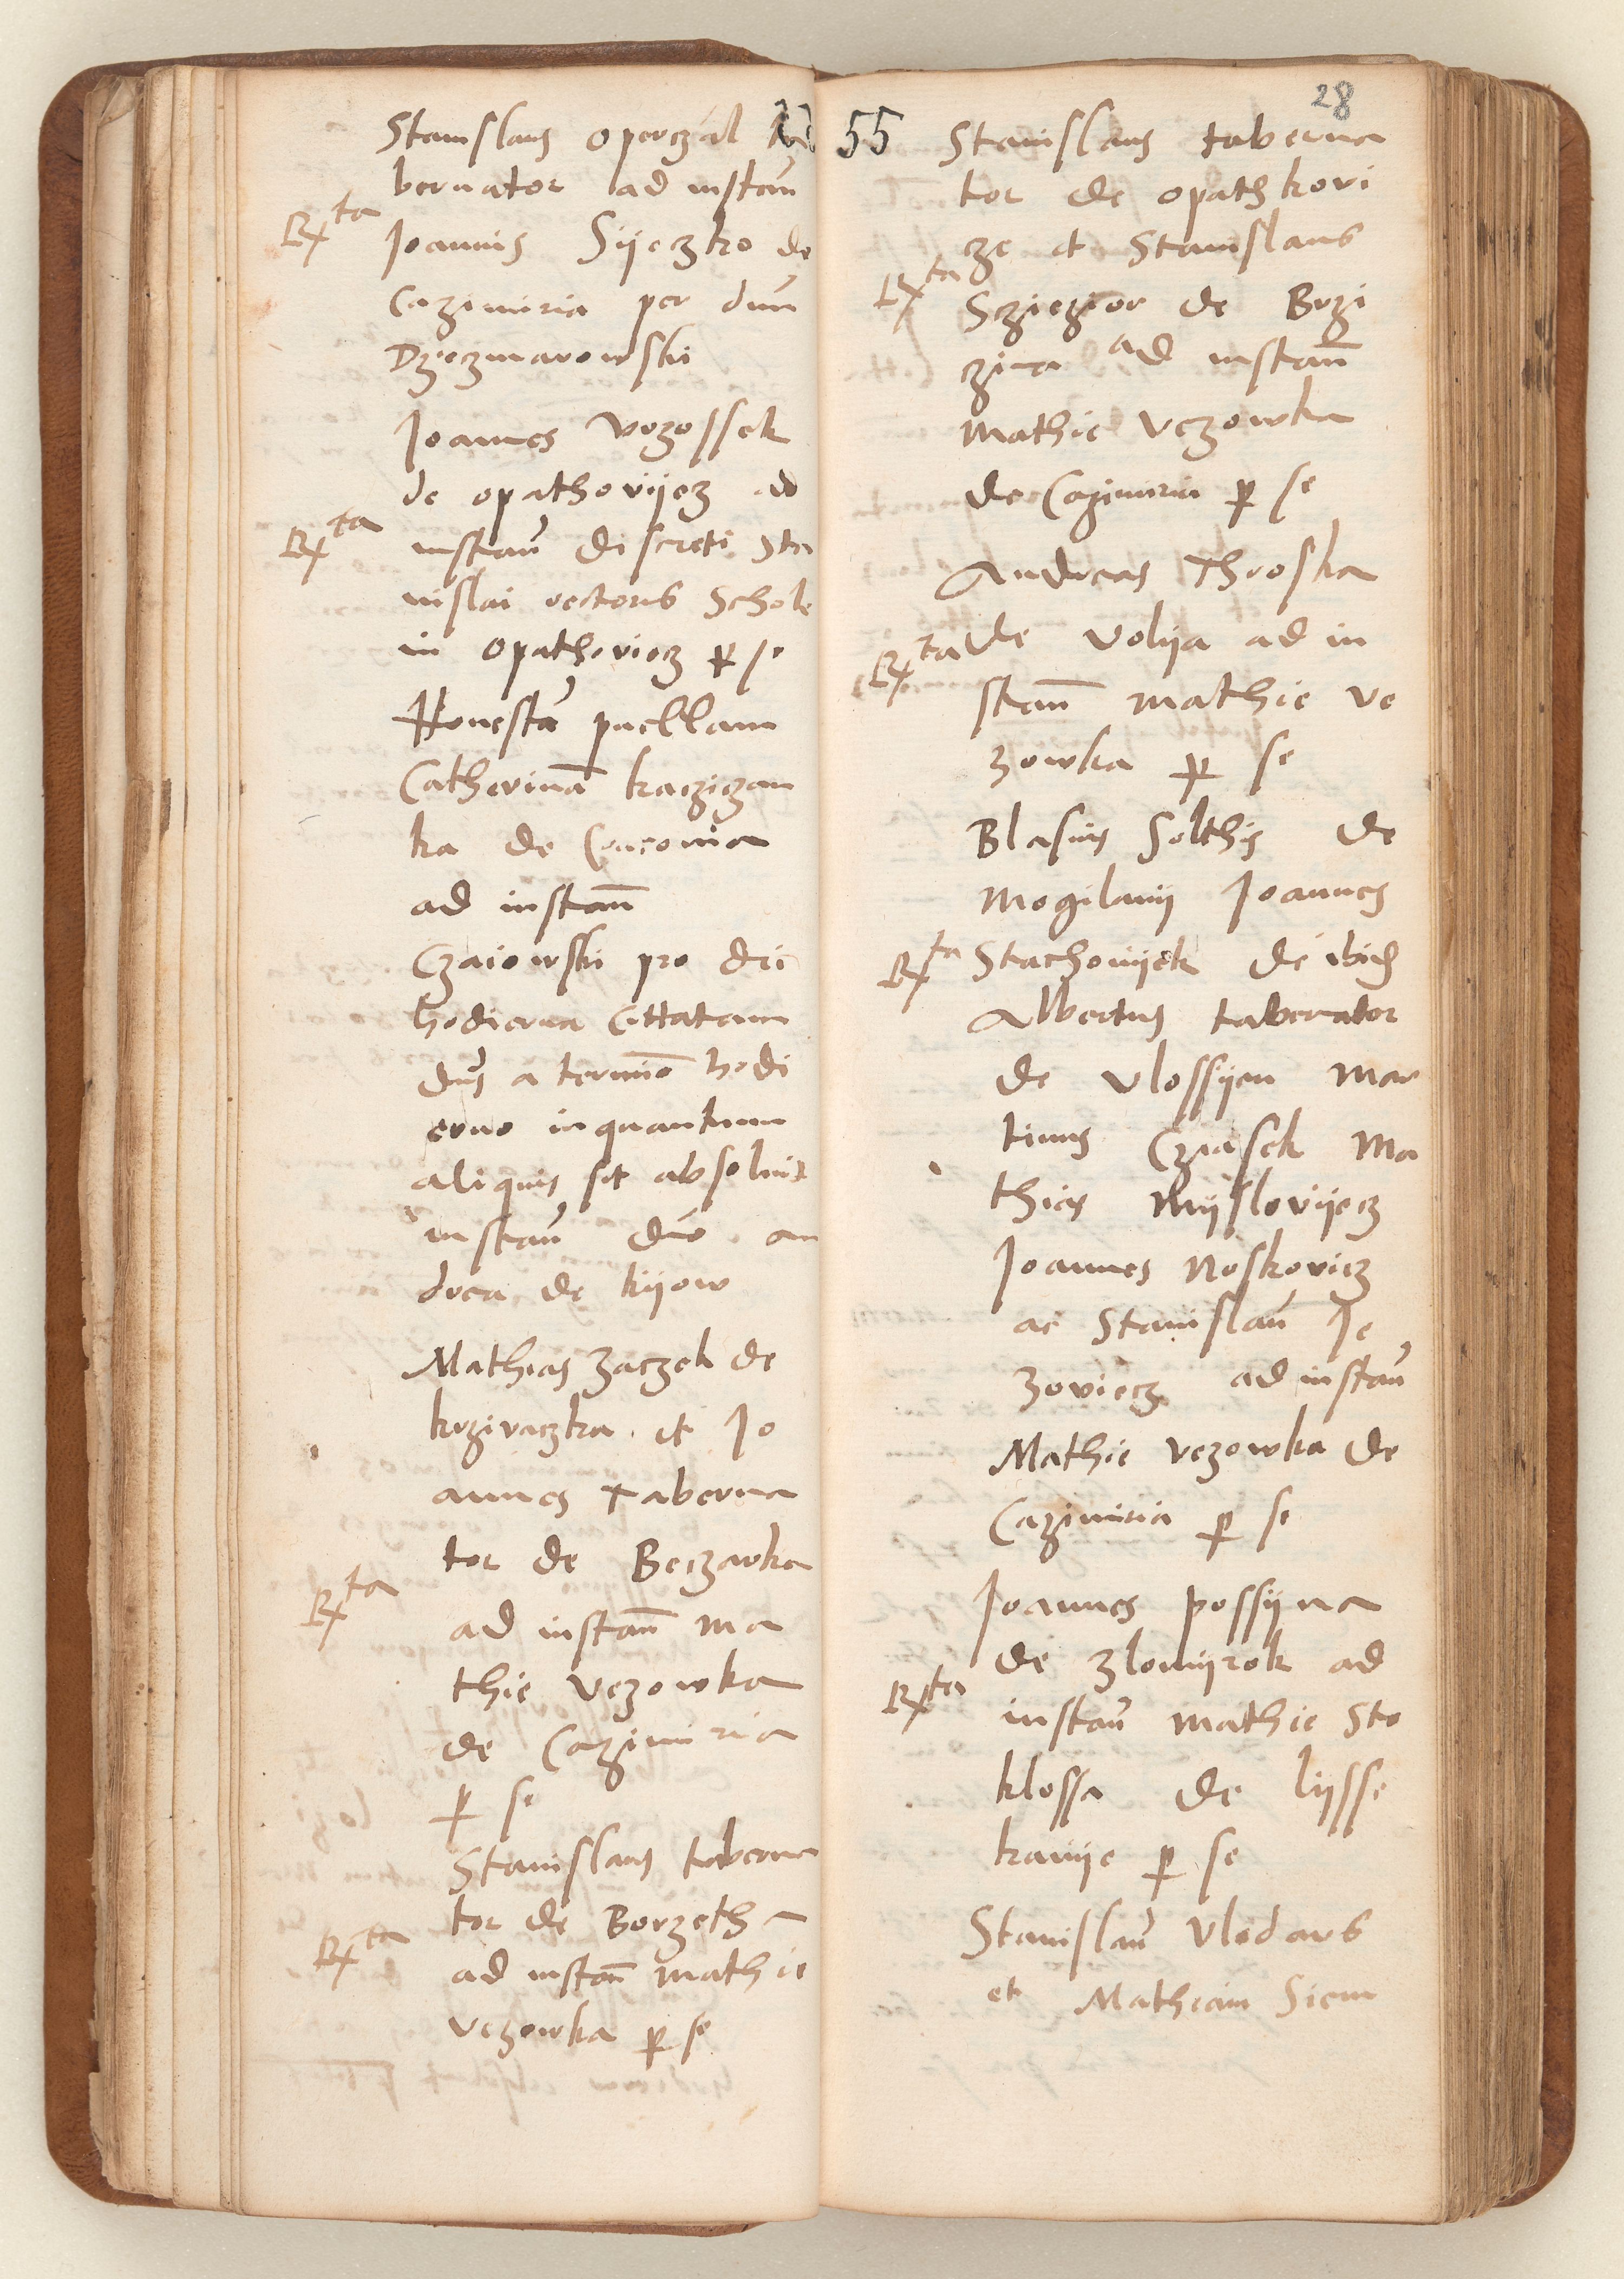 Stanislaus Operczal ta
bernator ad instan̄
Rta Joannis Sijeczko de
Cazimiria per dnm̄
Dzeczmarowski
Joannes Vozossek
de opathovijecz ad
Rta instan̄ discreti Sta
nislai rectoris Schole
in Opathoviecz p se
Honestā puellam
Catherinā kacziczan
ka de Cracovia
ad instan̄
Czaiowski pro dei
hodierna Cittatam
dn̄s a termino hodi
erno in quantum
aliquis sit absoluit
instan̄ dn̄o an
drea de kijow
Mathias Zaczek de
krzivaczka et Jo
annes Taberna
tor de Beczarka
Rta ad instan̄ ma
thie Vezowka
de Cazimiria
p se
Stanislaus taberna
tor de Borzetha
Rta ad instan̄ mathie
Vezowka p se
28
55 Stanislaus taberna
tor de opathkovi
cze et Stanislaus
Rta Sziegior de Brzi
zina ad instan̄
Mathie Vezowka
de Cazimiria p se
Andreas Throska
Rta de Volija ad in
stan̄ mathie ve
zowka p se
Blasius Solthis de
Mogilanij Joannes
Rta Stachonijek de ibid
Albertus tabernator
de Vlossijen Mar
tinus Cziasek Ma
thias Mijslovijecz
Joannes Noskovicz
ac Stanislaū Je
zoviecz ad instan̄
Mathie Vezowka de
Cazimiria p se
Joannes possijna
de Zlomijrok ad
Rta instan̄ mathie Sto
klossa de lijsse
kanije p se
Stanislaū Vlodars
et Mathiam Siem